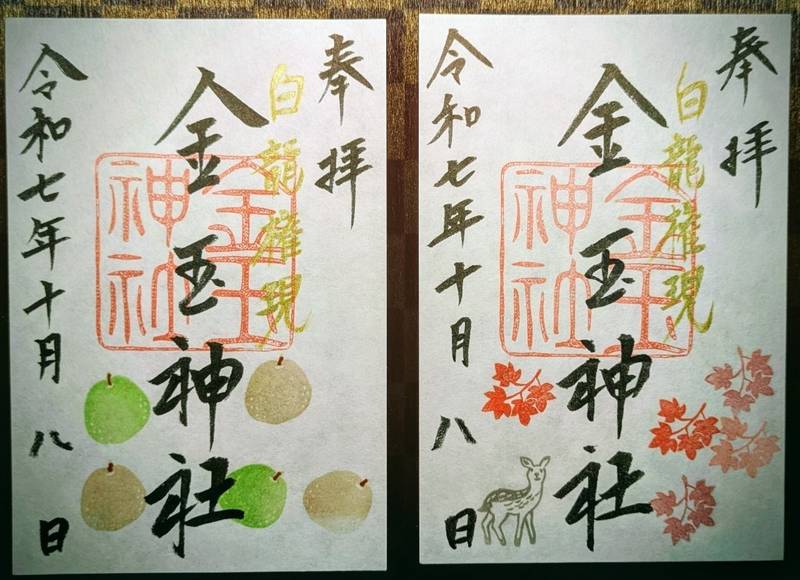 奉拝
白龍権現
金玉神社
金玉
神社
令和七年十月八日
奉拝
白龍権現
金玉神社
金玉
神社
令和七年十月八日